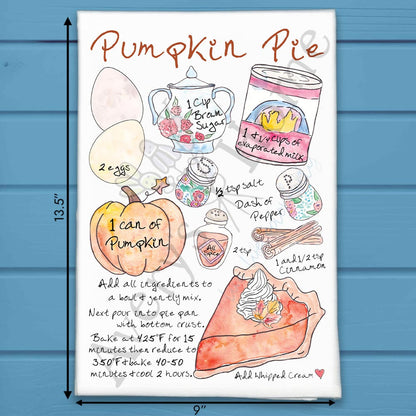 Pumpkin Pie
1 Cup
Brown
Sugar
1 & 1/4 cups of
evaporated milk
2 eggs
1/2 tsp salt
Dash of
Pepper
1 can of
Pumpkin
All
Spice
2 tsp
1 and 1/2 tsp
Cinnamon
Add all ingredients to
a bowl & gently mix.
Next pour into pie pan
with bottom crust.
Bake at 425°F for 15
minutes then reduce to
350°F & bake 40-50
minutes & cool 2 hours.
Add Whipped Cream
13.5"
9"